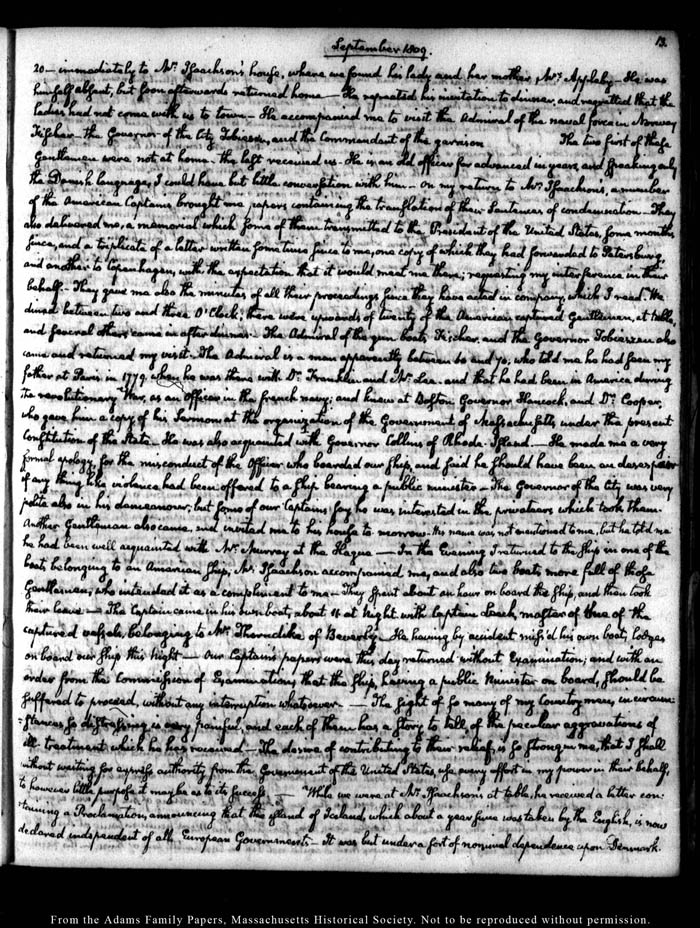 13.
September 1809.
20— immediately to Mr. Isaachson's house, where we found his lady and her mother, Mrs. Appleby— He was
himself absent, but soon afterwards returned home— He repeated his invitation to dinner, and regretted that the
ladies had not come with us to town— He accompanied me to visit the Admiral of the naval force in Norway
Fischer— the Governor of the City Tobiesen, and the Commandant of the garrison The two first of these
Gentlemen were not at home— the last received us— He is an old officer far advanced in years, and speaking only
the Danish language, I could have but little conversation with him— On my return to Mr. Isaachson's, a number
of the American Captains brought me papers containing the translation of their Sentences of condemnation— They
also delivered me, a memorial which some of them transmitted to the President of the United States, some months
since, and a triplicate of a letter written sometime since to me, one copy of which they had forwarded to Petersburg,
and another to Copenhagen, with the expectation that it would meet me there; requesting my interference in their
behalf— They gave me also the minutes of all their proceedings since they have acted in company, which I read. We
dined between two and three O'Clock; there were upwards of twenty of the American captured Gentlemen, at table,
and several others came in after dinner— The Admiral of the gun boats Fischer, and the Governor Tobiesen also
came and returned my visit— The Admiral is a man apparently between 60 and 70; who told me he had seen my
father at Paris in 1779. when he was there with Dr. Franklin and Mr. Lee— and that he had been in America during
the revolutionary War, as an Officer in the french navy; and knew at Boston Governor Hancock, and Dr. Cooper,
who gave him a copy of his Sermon at the organization of the Government of Massachusetts, under the present
Constitution of the State— He was also acquainted with Governor Collins of Rhode-Island— He made me a very
formal apology, for the misconduct of the Officer who boarded our Ship, and said he should have been in despair
if any thing like violence had been offered to a Ship bearing a public minister— The Governor of the City was very
polite also in his demeanour; but some of our Captains say he was interested in the privateers which took them—
Another Gentleman also came and invited me to his house to-morrow— His name was not mentioned to me, but he told me
he had been well acquainted with Mr. Murray at the Hague— In the Evening I returned to the Ship in one of the
boats belonging to an American ship; Mr. Isaachson accompanied me, and also two boats more full of these
Gentlemen, who intended it as a compliment to me— They spent about an hour on board the Ship, and then took
their leave— The Captain came in his own boat, about 11 at Night with Captain Leach, master of one of the
captured vessels, belonging to Mr. Thorndike of Beverly— He having by accident miss'd his own boat, lodges
on board our Ship this Night— Our Captain's papers were this day returned without Examination; and with an
order from the Commission of Examination, that the Ship, having a public Minister on board, should be
suffered to proceed, without any interruption whatsoever— The sight of so many of my Country men, in circum-
-stances so distressing is very painful, and each of them has a story to tell, of the peculiar aggravations of
ill-treatment which he has received— The desire of contributing to their relief, is so strong in me, that I shall
without waiting for express authority from the Government of the United States, use every effort in my power in their behalf,
to however little purpose it may be as to its success— While we were at Mr. Isaachson's at table, he received a letter con-
-taining a Proclamation, announcing that the island of Iceland, which about a year since was taken by the English, is now
declared independent of all European Governments— It was but under a sort of nominal dependence upon Denmark.
From the Adams Family Papers, Massachusetts Historical Society. Not to be reproduced without permission.